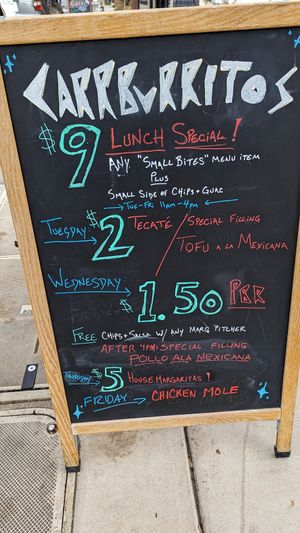 CARRBURRITOS
$9 LUNCH SPECIAL!
ANY "SMALL BITES" MENU ITEM
PLUS
SMALL SIDE OF CHIPS + GUAC
TUE-FRI 11am-4pm
TUESDAY $2 TECATE / SPECIAL FILLING
TOFU A LA MEXICANA
WEDNESDAY $1.50 PBR
FREE CHIPS + SALSA W/ ANY MARG PITCHER
AFTER 4PM: SPECIAL FILLING
POLLO ALA MEXICANA
THURSDAY $5 HOUSE MARGARITAS!
FRIDAY CHICKEN MOLE